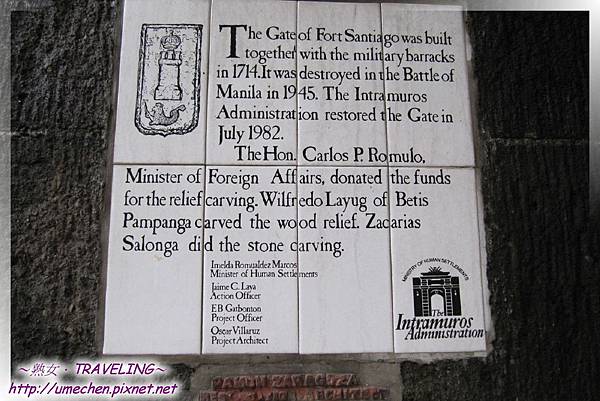 The Gate of Fort Santiago was built
together with the military barracks
in 1714. It was destroyed in the Battle of
Manila in 1945. The Intramuros
Administration restored the Gate in
July 1982.
The Hon. Carlos P. Romulo,
Minister of Foreign Affairs, donated the funds
for the relief carving. Wilfredo Layug of Betis
Pampanga carved the wood relief. Zacarias
Salonga did the stone carving.
Imelda Romualdez Marcos
Minister of Human Settlements
Jaime C. Laya
Action Officer
E.B Gatbonton
Project Officer
Oscar Villaruz
Project Architect
MINISTRY OF HUMAN SETTLEMENTS
The
Intramuros
Administration
～熟女‧TRAVELING～
http://umechen.pixnet.net